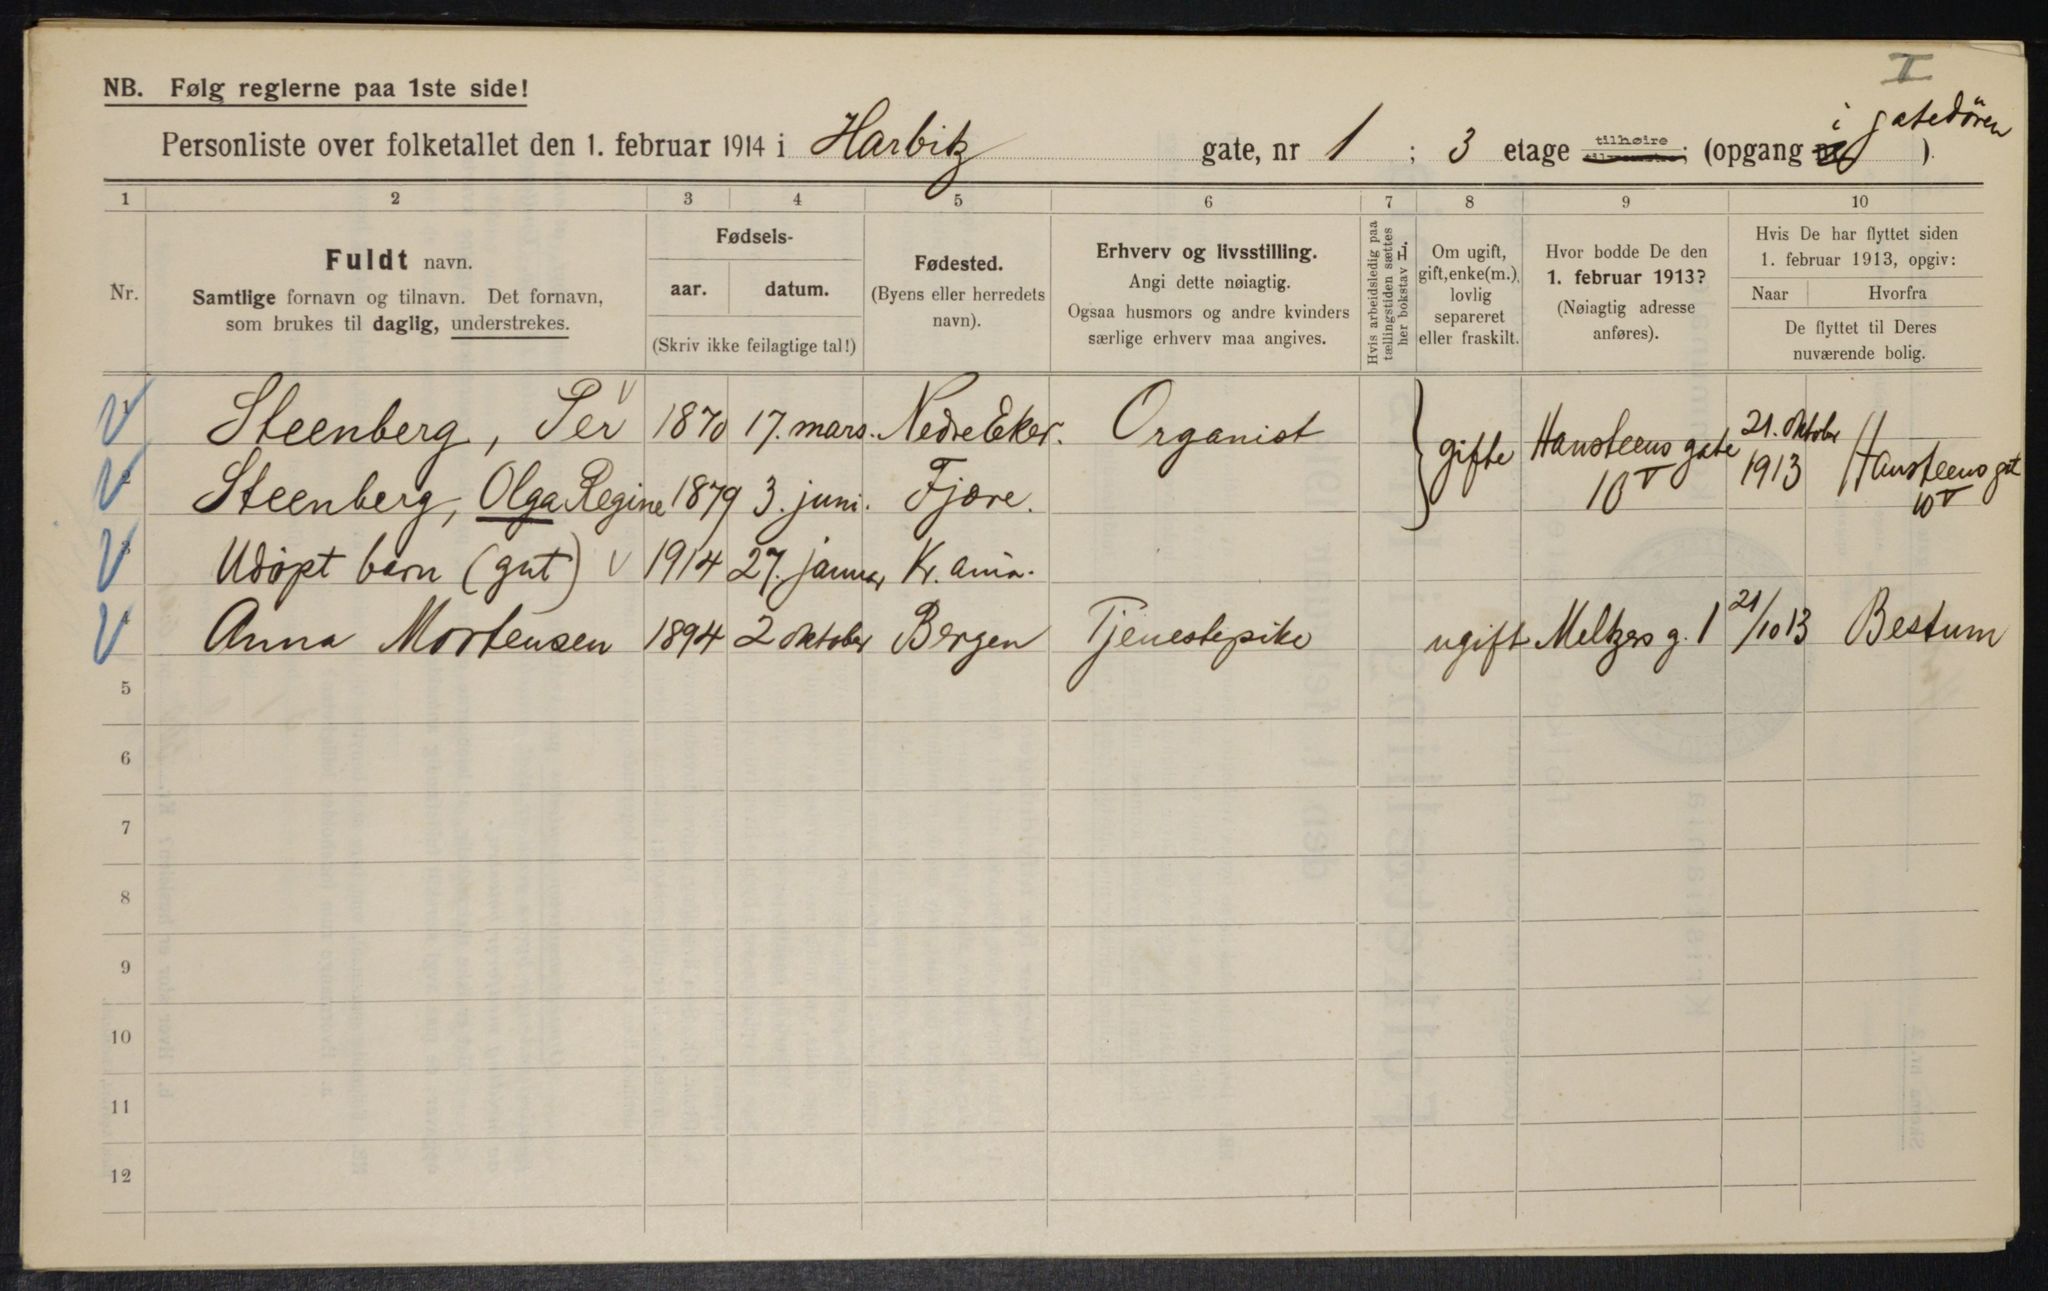 I
NB. Følg reglerne paa 1ste side!
Personliste over folketallet den 1. februar 1914 i Harbitz gate, nr 1 ; 3 etage tilhøire ; (opgang i gatedören ).
1 2 3 4 5 6 7 8 9 10
Nr.
Fuldt navn.
Samtlige fornavn og tilnavn. Det fornavn,
som brukes til daglig, understrekes.
Fødsels-
aar. datum.
(Skriv ikke feilagtige tal!)
Fødested.
(Byens eller herredets
navn).
Erhverv og livsstilling.
Angi dette nøiagtig.
Ogsaa husmors og andre kvinders
særlige erhverv maa angives.
Hvis arbeidsledig paa
tællingstiden sættes
her bokstav L.
Om ugift,
gift, enke(m.),
lovlig
separeret
eller fraskilt.
Hvor bodde De den
1. februar 1913?
(Nøiagtig adresse
anføres).
Hvis De har flyttet siden
1. februar 1913, opgiv:
Naar Hvorfra
De flyttet til Deres
nuværende bolig.
1 Steenberg, Per 1870 17. mars. Nedre Eker. Organist gifte Hansteens gate 10 V 21. Oktober 1913 Hansteens gt 10 V
2 Steenberg, Olga Regine 1879 3. juni. Fjære.
3 Udøpt barn (gut) 1914 27. januar Kr.ania.
4 Anna Mortensen 1894 2 oktober Bergen Tjenestepike ugift Meltzers g. 1 21/10 13 Bestum
5
6
7
8
9
10
11
12